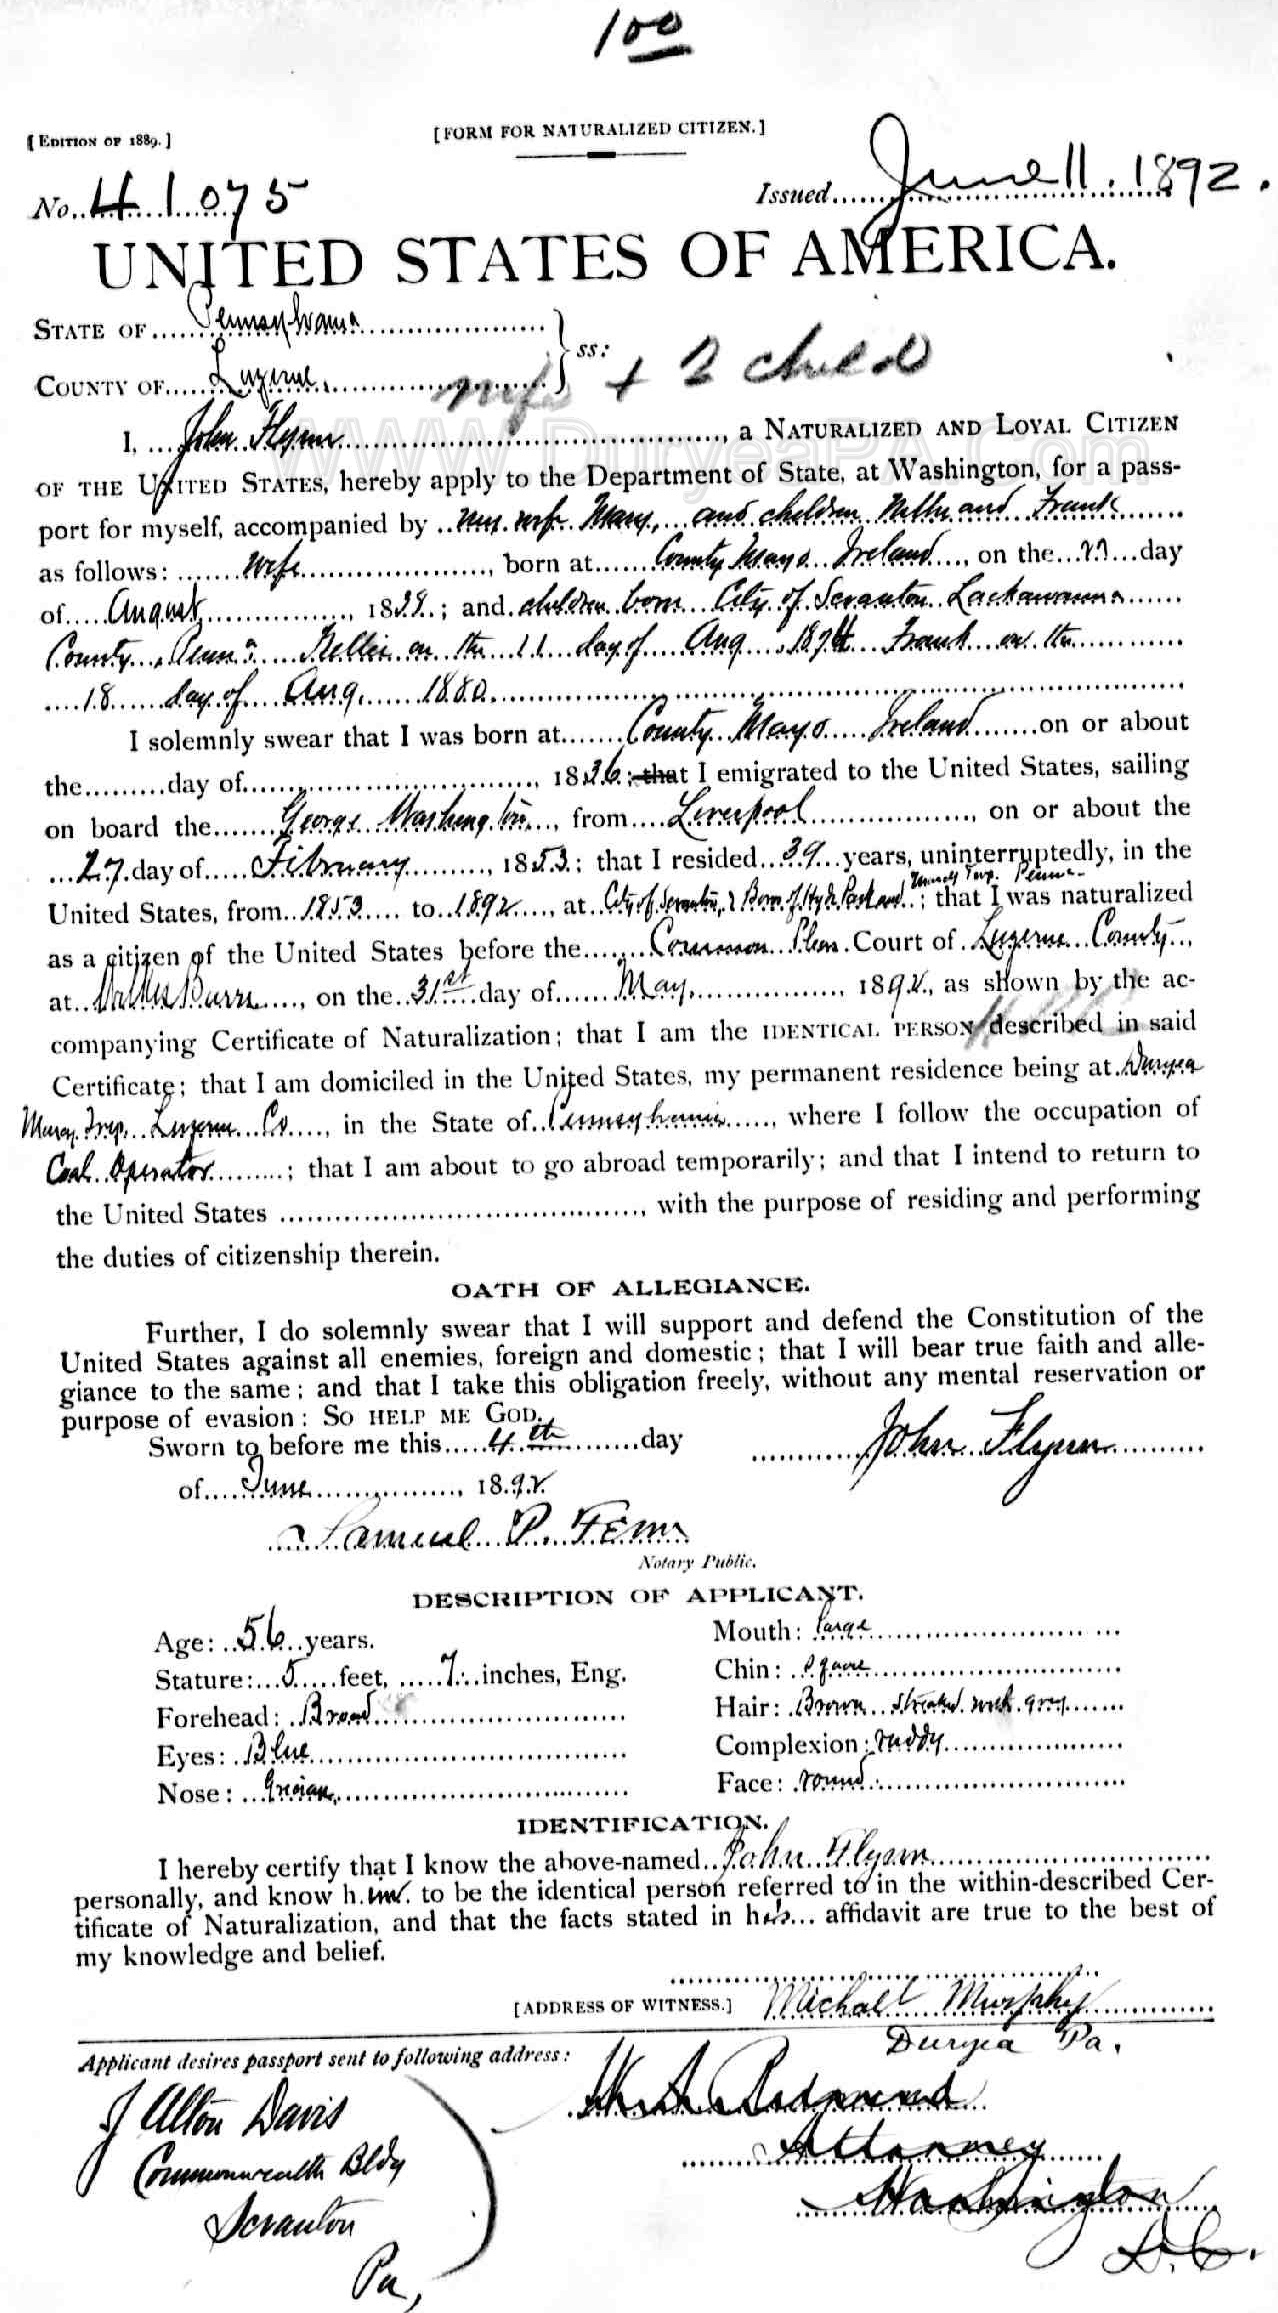 100
[EDITION OF 1889.]
[FORM FOR NATURALIZED CITIZEN.]
No. 41075
Issued June 11. 1892.
UNITED STATES OF AMERICA.
STATE OF Pennsylvania
COUNTY OF Luzerne } ss:
wife + 2 child
WWW.DuryeaPA.Com
I, John Flynn, a NATURALIZED AND LOYAL CITIZEN
OF THE UNITED STATES, hereby apply to the Department of State, at Washington, for a pass-
port for myself, accompanied by my wife Mary, and children Nellie and Frank
as follows: wife, born at County Mayo Ireland, on the day
of August, 18; and children born City of Scranton Lackawanna
County, Penna Nellie on the 11 day of Aug 1874 Frank on the
18 day of Aug. 1880
I solemnly swear that I was born at County Mayo Ireland on or about
the day of , 1836; that I emigrated to the United States, sailing
on board the George Washington, from Liverpool, on or about the
27 day of February, 1853; that I resided 39 years, uninterruptedly, in the
Marcy Twp. Penna
United States, from 1853 to 1892, at City of Scranton, Boro. of Hyde Park and; that I was naturalized
as a citizen of the United States before the Common Pleas Court of Luzerne County,
at Wilkes Barre, on the 31st day of May, 1892, as shown by the ac-
companying Certificate of Naturalization; that I am the IDENTICAL PERSON described in said
Certificate; that I am domiciled in the United States, my permanent residence being at Duryea
Marcy Twp. Luzerne Co, in the State of Pennsylvania, where I follow the occupation of
Coal Operator; that I am about to go abroad temporarily; and that I intend to return to
the United States , with the purpose of residing and performing
the duties of citizenship therein.
OATH OF ALLEGIANCE.
Further, I do solemnly swear that I will support and defend the Constitution of the
United States against all enemies, foreign and domestic; that I will bear true faith and alle-
giance to the same; and that I take this obligation freely, without any mental reservation or
purpose of evasion: SO HELP ME GOD.
Sworn to before me this 4th day
John Flynn
of June, 1892
Samuel P. Fenn
Notary Public.
DESCRIPTION OF APPLICANT.
Age: 56 years.
Stature: 5 feet, 7 inches, Eng.
Forehead: Broad
Eyes: Blue
Nose: Grecian
Mouth: large
Chin: square
Hair: Brown streaked with grey
Complexion: ruddy
Face: round
IDENTIFICATION.
I hereby certify that I know the above-named John Flynn
personally, and know him to be the identical person referred to in the within-described Cer-
tificate of Naturalization, and that the facts stated in his affidavit are true to the best of
my knowledge and belief.
[ADDRESS OF WITNESS.] Michael Murphy
Duryea Pa.
Applicant desires passport sent to following address:
J Alton Davis
Commonwealth Bldg
Scranton
Pa,
Redmond
Attorney
Washington
D.C.